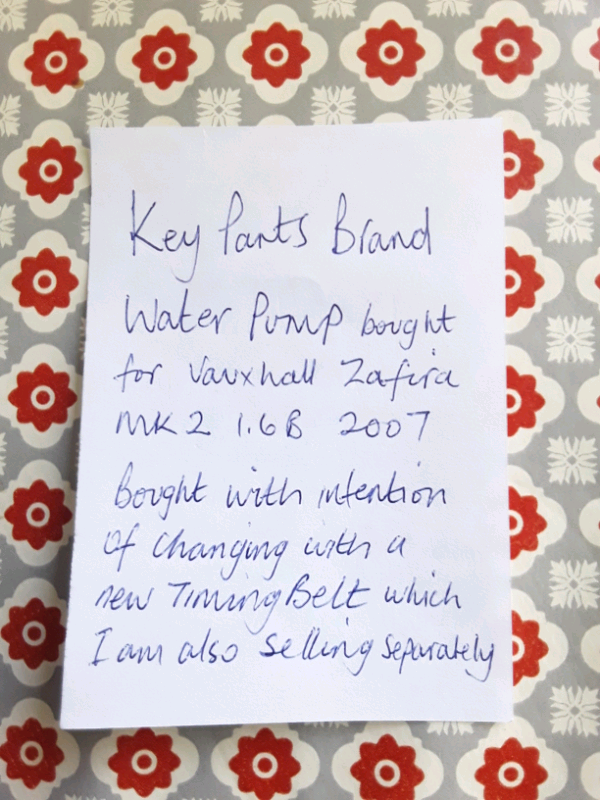 Key Parts Brand
Water Pump bought
for Vauxhall Zafira
MK2 1.6B 2007
bought with intention
of changing with a
new Timing Belt which
I am also selling separately